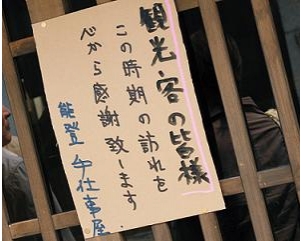 観光客の皆様
この時期の訪れを
心から感謝致します.
能登手仕事屋